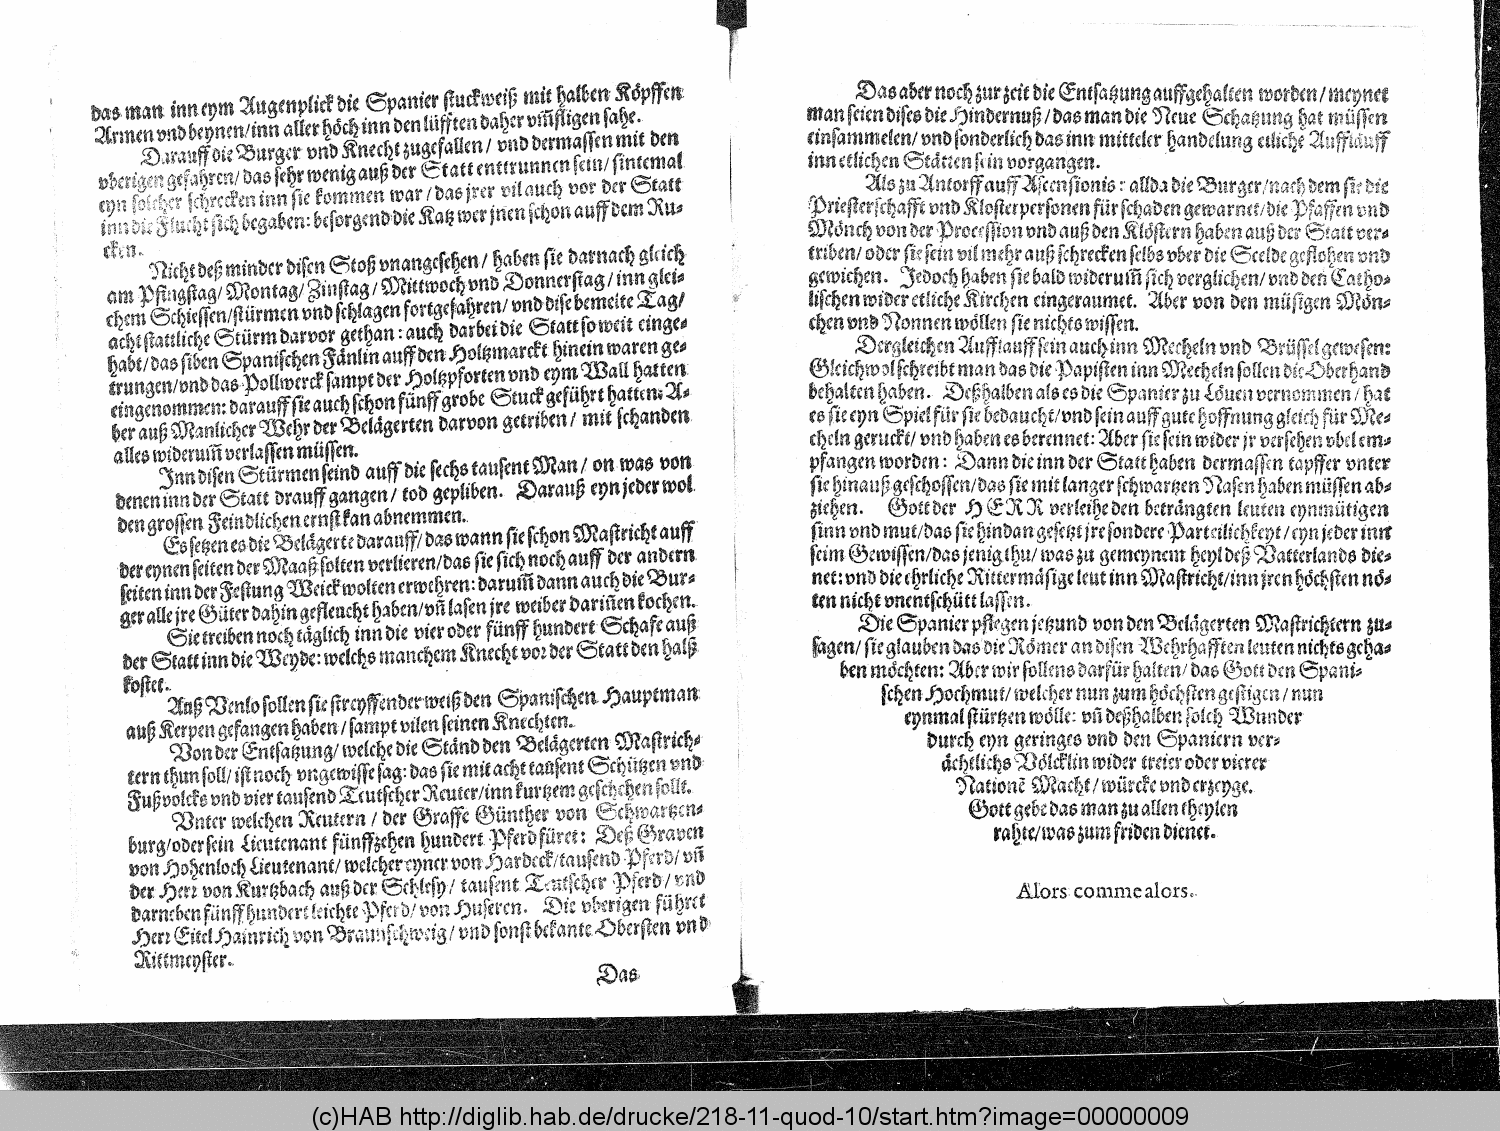 das man inn eym Augenplick die Spanier stuckweiß mit halben Köpffen
Armen vnd beynen/inn aller höch inn den lüfften daher vm̃stigen sahe.
Darauff die Burger vnd Knecht zugefallen/ vnd dermassen mit den
vberigen gefahren/ das sehr wenig auß der Statt enttrunnen sein/ sintemal
eyn solcher schrecken inn sie kommen war/ das jrer vil auch vor der Statt
inn die Flucht sich begaben: besorgend die Katz wer jnen schon auff dem Ru-
cken.
Nicht deß minder disen Stoß vnangesehen/ haben sie darnach gleich
am Pfingstag/ Montag/ Zinstag/ Mittwoch vnd Donnerstag/ inn glei-
chem Schiessen/stürmen vnd schlagen fortgefahren/ vnd dise bemelte Tag/
acht stattliche Stürm darvor gethan: auch darbei die Statt so weit einge-
habt/ das siben Spanischen Fänlin auff den Holtzmarckt hinein waren ge-
trungen/vnd das Pollwerck sampt der Holtzpforten vnd eym Wall hatten
eingenommen: darauff sie auch schon fünff grobe Stuck geführt hatten: A-
ber auß Manlicher Wehr der Belägerten darvon getriben/ mit schanden
alles widerum̃ verlassen müssen.
Inn disen Stürmen seind auff die sechs tausent Man/ on was von
denen inn der Statt drauff gangen/ tod gepliben. Darauß eyn jeder wol
den grossen Feindlichen ernst kan abnemmen.
Es setzen es die Belägerte darauff/ das wann sie schon Mastricht auff
der eynen seiten der Maaß solten verlieren/das sie sich noch auff der andern
seiten inn der Festung Weick wolten erwehren: darum̃ dann auch die Bur-
ger alle jre Güter dahin gefleucht haben/vn̄ lasen jre weiber darin̄en kochen.
Sie treiben noch täglich inn die vier oder fünff hundert Schafe auß
der Statt inn die Weyde: welchs manchem Knecht vor der Statt den halß
kostet.
Auß Venlo sollen sie streyffender weiß den Spanischen Hauptman
auß Kerpen gefangen haben/ sampt vilen seinen Knechten.
Von der Entsatzung/ welche die Ständ den Belägerten Mastrich-
tern thun soll/ ist noch vngewisse sag: das sie mit acht tausent Schützen vnd
Fußvolcks vnd vier tausend Teutscher Reuter/inn kurtzem geschehen sollt.
Vnter welchen Reutern/ der Graffe Günther von Schwartzen-
burg/oder sein Lieutenant fünffzehen hundert Pferd füret: Deß Graven
von Hohenloch Lieutenant/ welcher eyner von Hardeck/tausend Pferd/ vn̄
der Herr von Kurtzbach auß der Schlesy/ tausent Teutscher Pferd/ vnd
darneben fünff hundert leichte Pferd/ von Huseren. Die vberigen führet
Herr Eitel Hainrich von Braunschweig/ vnd sonst bekante Obersten vnd
Rittmeyster.
Das
Das aber noch zur zeit die Entsatzung auffgehalten worden/ meynet
man seien dises die Hindernuß/ das man die Neue Schatzung hat müssen
einsammelen/ vnd sonderlich das inn mitteler handelung etliche Aufflauff
inn etlichen Stätten sein vorgangen.
Als zu Antorff auff Ascensionis: allda die Burger/nach dem sie die
Priesterschafft vnd Klosterpersonen für schaden gewarnet/die Pfaffen vnd
Mönch von der Procession vnd auß den Klöstern haben auß der Statt ver-
triben/ oder sie sein vil mehr auß schrecken selbs vber die Scelde geflohen vnd
gewichen. Jedoch haben sie bald widerum̃ sich verglichen/ vnd den Catho-
lischen wider etliche Kirchen eingeraumet. Aber von den müsigen Mön-
chen vnd Nonnen wöllen sie nichts wissen.
Dergleichen Aufflauff sein auch inn Mecheln vnd Brüssel gewesen:
Gleichwol schreibt man das die Papisten inn Mecheln sollen die Oberhand
behalten haben. Deßhalben als es die Spanier zu Löuen vernommen/ hat
es sie eyn Spiel für sie bedaucht/vnd sein auff gute hoffnung gleich für Me-
cheln geruckt/ vnd haben es berennet: Aber sie sein wider jr versehen vbel em-
pfangen worden: Dann die inn der Statt haben dermassen tapffer vnter
sie hinauß geschossen/das sie mit langer schwartzen Nasen haben müssen ab-
ziehen. Gott der HERR verleihe den beträngten leuten eynmütigen
sinn vnd mut/das sie hindan gesetzt jre sondere Parteilichkeyt/ eyn jeder inn
seim Gewissen/das jenig thu/ was zu gemeynem heyl deß Vatterlands die-
net: vnd die ehrliche Rittermäsige leut inn Mastricht/inn jren höchsten nö-
ten nicht vnentschütt lassen.
Die Spanier pflegen jetzund von den Belägerten Mastrichtern zu-
sagen/ sie glauben das die Römer an disen Wehrhafften leuten nichts geha-
ben möchten: Aber wir sollens darfür halten/ das Gott den Spani-
schen Hochmut/ welcher nun zum höchsten gestigen/ nun
eynmal stürtzen wölle: vn̄ deßhalben solch Wunder
durch eyn geringes vnd den Spaniern ver-
ächtlichs Völcklin wider treier oder vierer
Nationē Macht/ würcke vnd erzeyge.
Gott gebe das man zu allen theylen
rahte/was zum friden dienet.
Alors comme alors.
(c)HAB http://diglib.hab.de/drucke/218-11-quod-10/start.htm?image=00000009